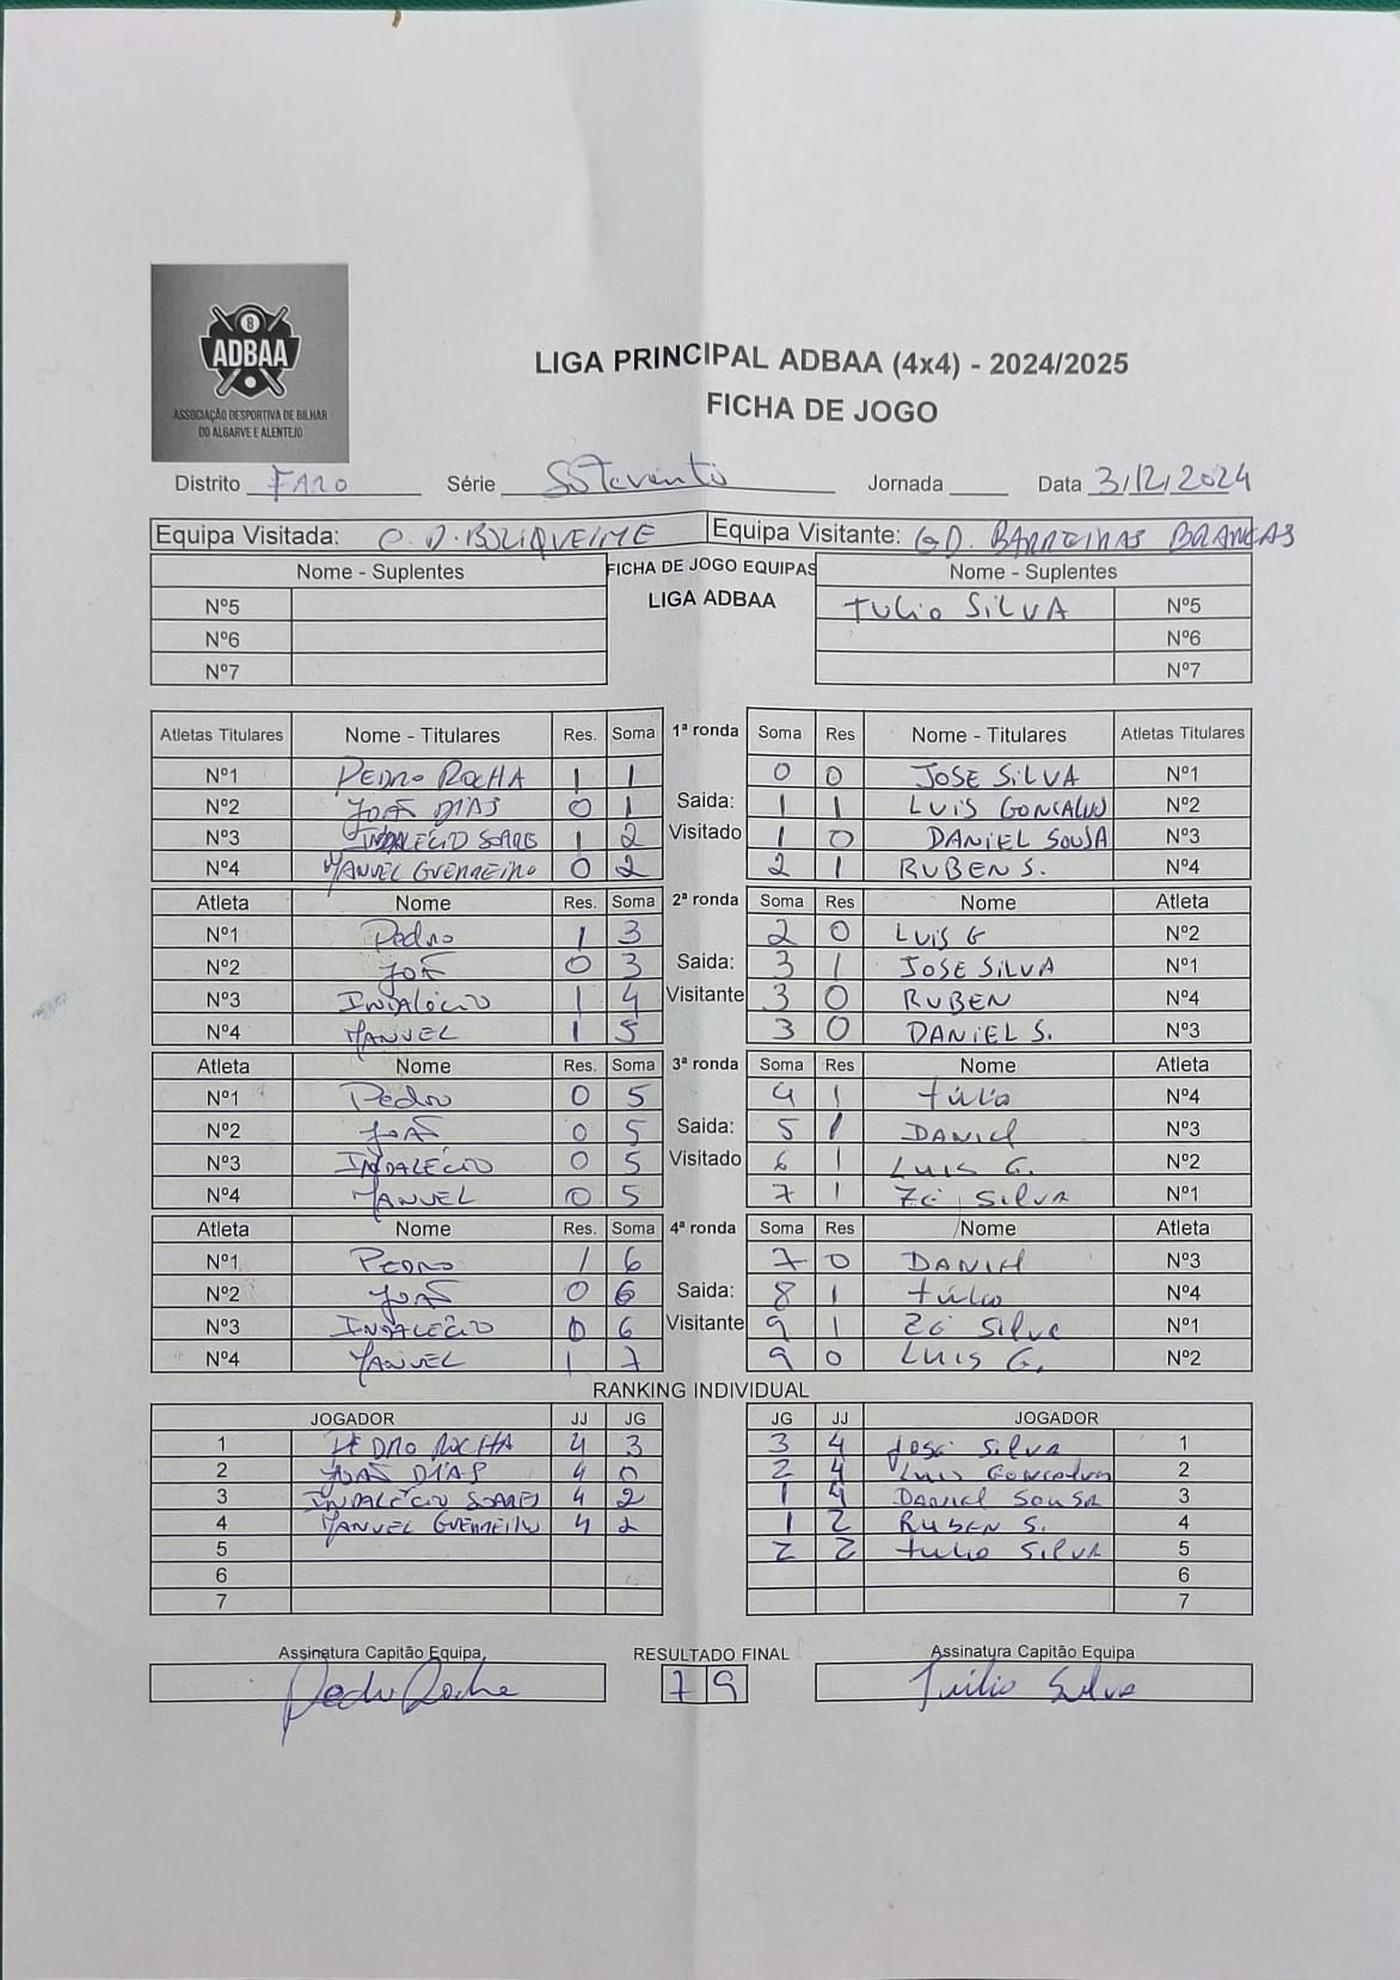 8
ADBAA
ASSOCIAÇÃO DESPORTIVA DE BILHAR
DO ALGARVE E ALENTEJO
LIGA PRINCIPAL ADBAA (4x4) - 2024/2025
FICHA DE JOGO
Distrito FARO Série Sotavento Jornada ____ Data 3/12/2024
Equipa Visitada: C. D. BOLIQUEIME Equipa Visitante: GD. BARREIRAS BRANCAS
Nome - Suplentes FICHA DE JOGO EQUIPAS Nome - Suplentes
Nº5 LIGA ADBAA TULIO SILVA Nº5
Nº6 Nº6
Nº7 Nº7
Atletas Titulares Nome - Titulares Res. Soma 1ª ronda Soma Res Nome - Titulares Atletas Titulares
Nº1 PEDRO ROCHA 1 1 0 0 JOSE SILVA Nº1
Nº2 JOÃO DIAS 0 1 Saida: 1 1 LUIS GONCALVES Nº2
Nº3 INDALÉCIO SOARES 1 2 Visitado 1 0 DANIEL SOUSA Nº3
Nº4 MANUEL GUERREIRO 0 2 2 1 RUBEN S. Nº4
Atleta Nome Res. Soma 2ª ronda Soma Res Nome Atleta
Nº1 Pedro 1 3 2 0 LUIS G Nº2
Nº2 JOÃO 0 3 Saida: 3 1 JOSE SILVA Nº1
Nº3 INDALÉCIO 1 4 Visitante 3 0 RUBEN Nº4
Nº4 MANUEL 1 5 3 0 DANIEL S. Nº3
Atleta Nome Res. Soma 3ª ronda Soma Res Nome Atleta
Nº1 Pedro 0 5 4 1 túlio Nº4
Nº2 JOÃO 0 5 Saida: 5 1 DANIEL Nº3
Nº3 INDALÉCIO 0 5 Visitado 6 1 LUIS G. Nº2
Nº4 MANUEL 0 5 7 1 Zé Silva Nº1
Atleta Nome Res. Soma 4ª ronda Soma Res Nome Atleta
Nº1 PEDRO 1 6 7 0 DANIEL Nº3
Nº2 JOÃO 0 6 Saida: 8 1 túlio Nº4
Nº3 INDALÉCIO 0 6 Visitante 9 1 Zé Silva Nº1
Nº4 MANUEL 1 7 9 0 LUIS G. Nº2
RANKING INDIVIDUAL
JOGADOR JJ JG JG JJ JOGADOR
1 PEDRO ROCHA 4 3 3 4 José Silva 1
2 JOÃO DIAS 4 0 2 4 Luis Goncalves 2
3 INDALÉCIO SOARES 4 2 1 4 DANIEL SOUSA 3
4 MANUEL GUERREIRO 4 2 1 2 RUBEN S. 4
5 2 2 tulio SilVA 5
6 6
7 7
Assinatura Capitão Equipa RESULTADO FINAL Assinatura Capitão Equipa
Pedro Rocha 7 9 Túlio Silva